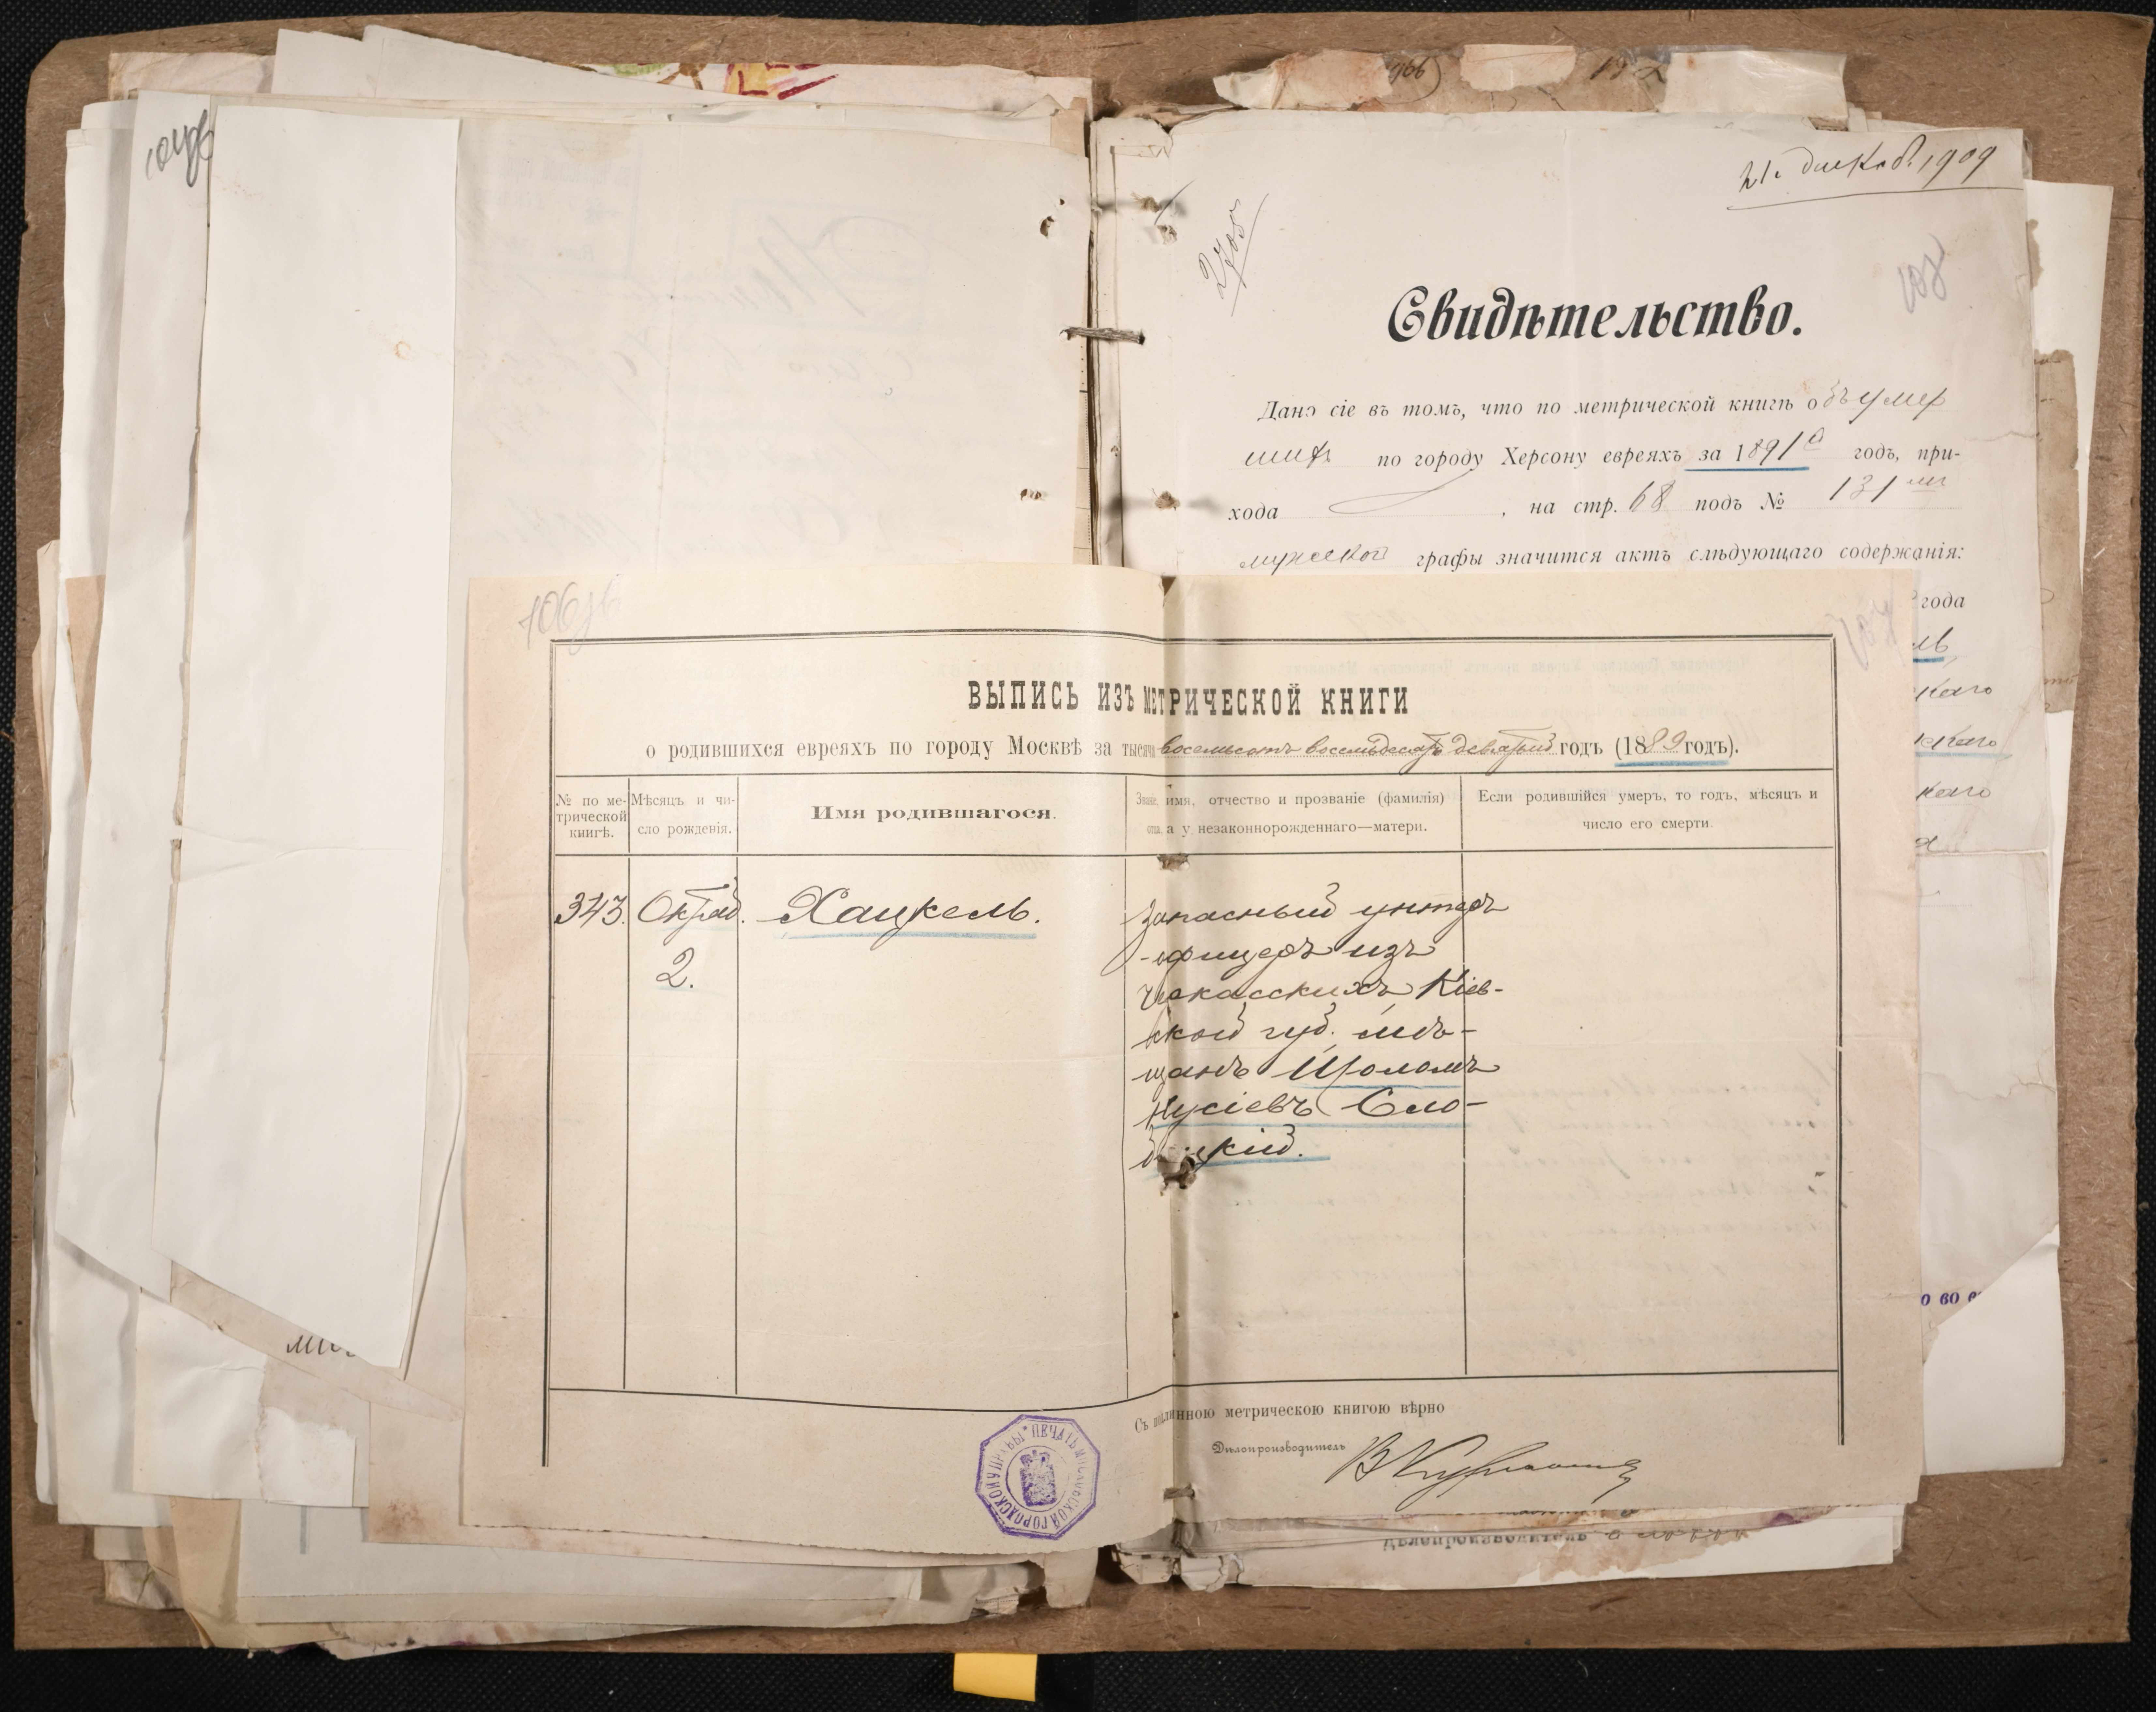 966
21 декаб. 1909
2708
108
Свидѣтельство.
Дано сіе въ томъ, что по метрической книгѣ объ умер
шихъ по городу Херсону евреяхъ за 1891й годъ, при-
хода , на стр. 68 подъ № 131мъ
мужской графы значится актъ слѣдующаго содержанія:
года
ль
скаго
скаго
каго
106об
107
ВЫПИСЬ ИЗЪ МЕТРИЧЕСКОЙ КНИГИ
о родившихся евреяхъ по городу Москвѣ за тысяча восемьсотъ восемьдесятъ девятый годъ (1889 годъ).
№ по ме-
трической
книгѣ.
Мѣсяцъ и чи-
сло рожденія.
Имя родившагося.
Званіе, имя, отчество и прозваніе (фамилія)
отца, а у незаконнорожденнаго—матери.
Если родившійся умеръ, то годъ, мѣсяцъ и
число его смерти.
343. Октяб. Хацкель.
2.
Запасный унтеръ
-офицеръ изъ
Черкасскихъ Кіев-
ской губ. мѣ-
щанъ Шоломъ
Нусіевъ Сло-
бодскій.
Съ подлинною метрическою книгою вѣрно
Дѣлопроизводитель
ПЕЧАТЬ МОСКОВСКОЙ ГОРОДСКОЙ УПРАВЫ
0 60
Дѣлопроизводитель